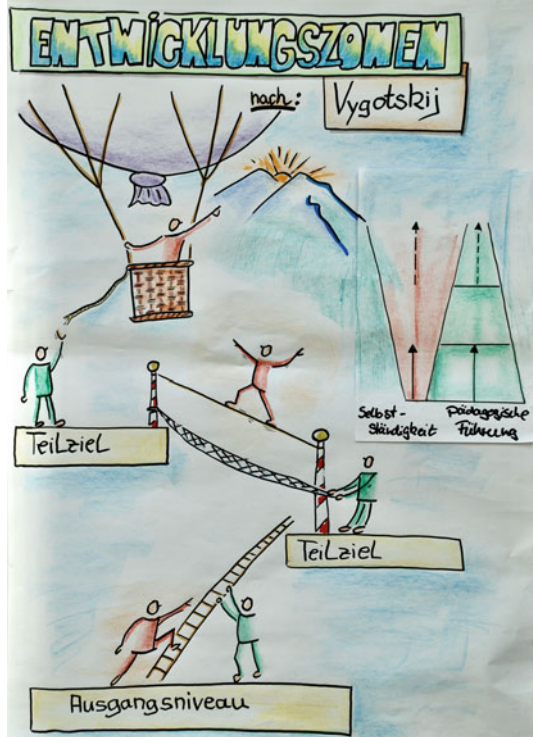 ENTWICKLUNGSZONEN
nach: Vygotskij
Selbst-
ständigkeit
pädagogische
Führung
Teilziel
Teilziel
Ausgangsniveau